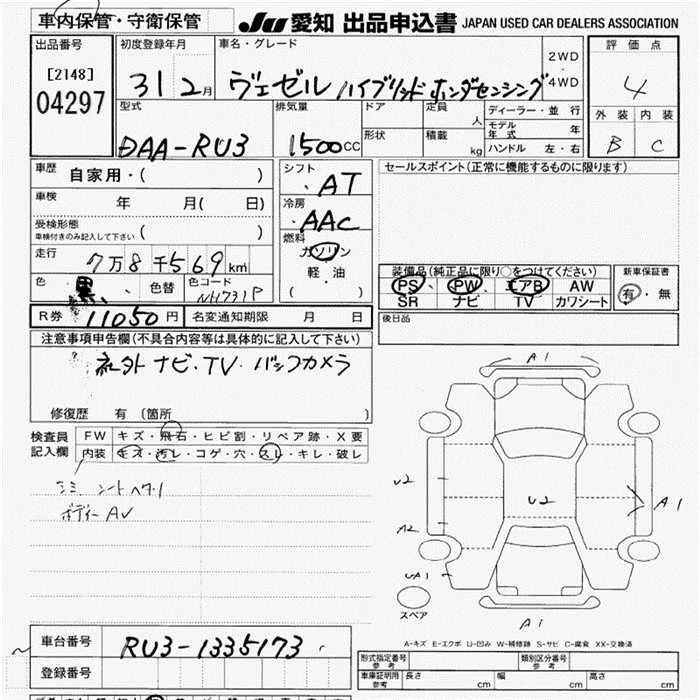 車内保管・守衛保管
JU 愛知 出品申込書 JAPAN USED CAR DEALERS ASSOCIATION
出品番号
[2148]
04297
初度登録年月
31 2月
車名・グレード
ヴェゼル ハイブリッド ホンダセンシング
2WD
・
4WD
評価点
4
外装 内装
B C
型式
DAA-RU3
排気量
1500cc
ドア
形状
定員 人
積載 kg
ディーラー・並行
モデル年式 年
ハンドル 左・右
車歴 自家用・( )
車検 年 月( 日)
受検形態
車検付きのみ記入して下さい ( )
走行 7万8千569km
色 黒、 色替 色コード NH731P
シフト
・AT
冷房
・AAC
燃料
ガソリン
軽・油
( )
セールスポイント(正常に機能するものに限ります)
装備品(純正品に限り○をつけてください)
PS PW エアB AW
SR ナビ TV カワシート
新車保証書
有・無
R券 11050円 名変通知期限 月 日
後日品
注意事項申告欄(不具合内容等は具体的に記入して下さい)
社外 ナビ・TV・バックカメラ
修復歴 有 (箇所 )
検査員
記入欄
FW キズ・飛石・ヒビ割・リペア跡・X要
内装 キズ・汚レ・コゲ・穴・スレ・キレ・破レ
シミ シートヘタリ
ボディー AU
A1
U2
U2
A1
A2
UA1
A1
スペア
A-キズ E-エクボ U-凹み W-補修跡 S-サビ C-腐食 XX-交換済
車台番号 RU3-1335173
登録番号
形式指定番号
参考
類別区分番号
参考
車庫証明用
参考
長さ cm 幅 cm 高さ cm